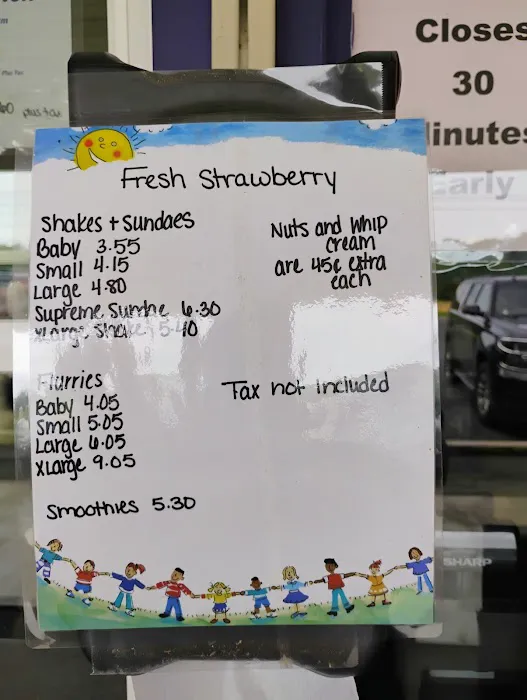 Closes
30
Minutes
Early
plus tax
Fresh Strawberry
Shakes + Sundaes
Baby 3.55
Small 4.15
Large 4.80
Supreme Sundae 6.30
XLarge Shake 5.40
Nuts and Whip
Cream
are 45¢ extra
each
Flurries
Baby 4.05
Small 5.05
Large 6.05
XLarge 9.05
Tax not included
Smoothies 5.30
SHARP